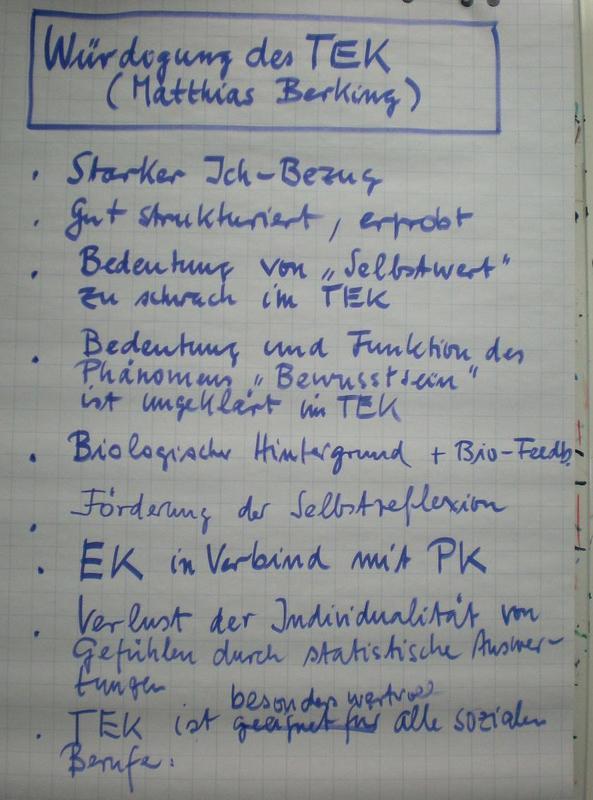 Würdigung des TEK
(Matthias Berking)
• Starker Ich-Bezug
• Gut strukturiert, erprobt
• Bedeutung von „Selbstwert"
zu schwach im TEK
• Bedeutung und Funktion des
Phänomens „Bewusstsein"
ist ungeklärt im TEK
• Biologischer Hintergrund + Bio-Feedb.
• Förderung der Selbstreflexion
• EK in Verbind mit PK
• Verlust der Individualität von
Gefühlen durch statistische Auswer-
tungen
besonders wertvoll
• TEK ist geeignet für alle sozialen
Berufe.